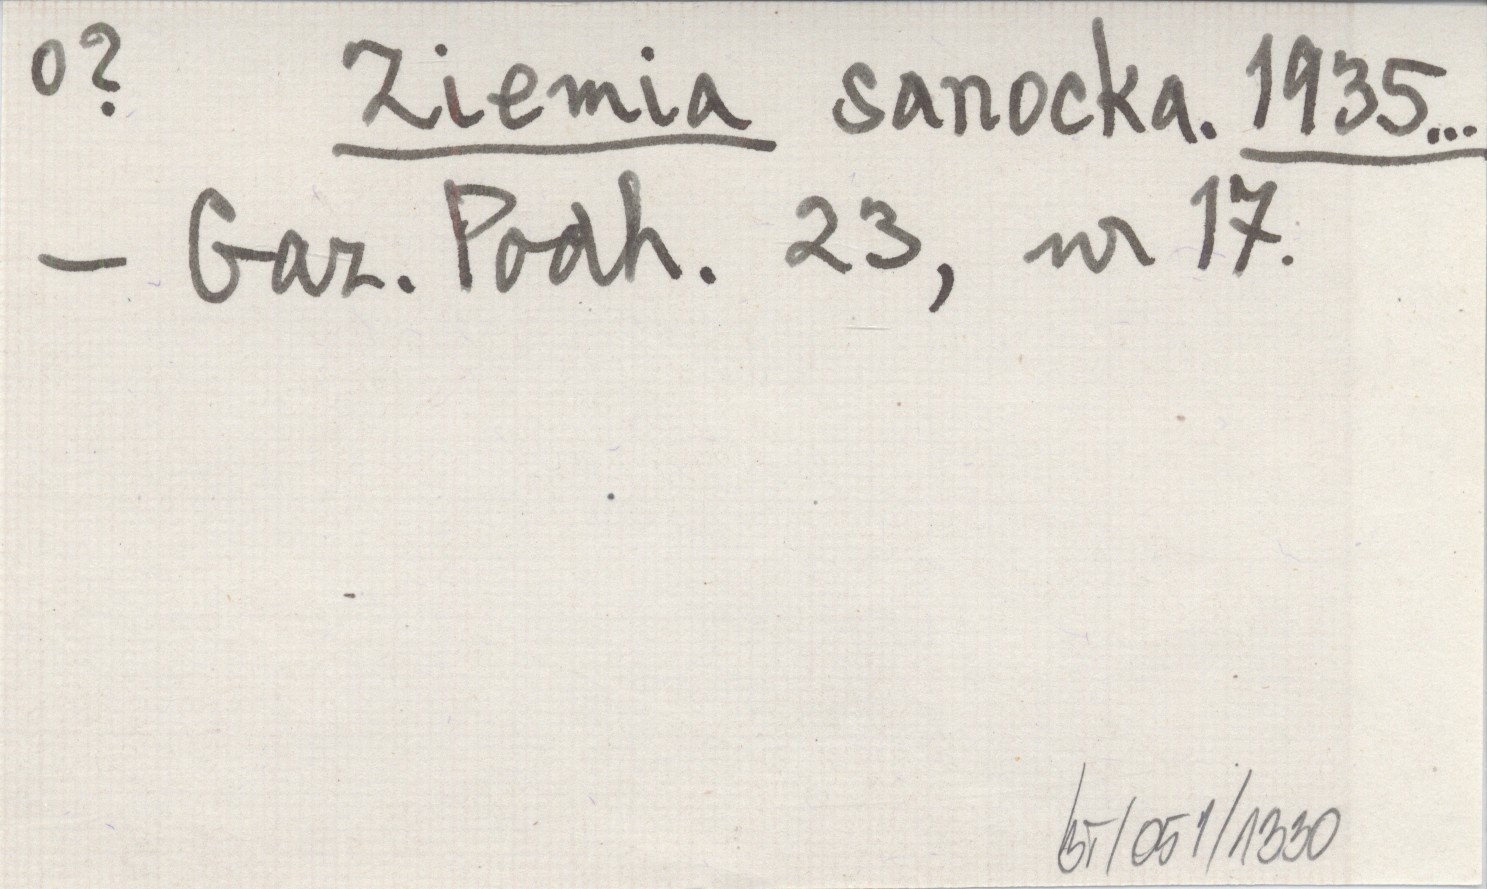 o? Ziemia sanocka. 1935...
– Gaz. Podh. 23, nr 17.
/051/1330